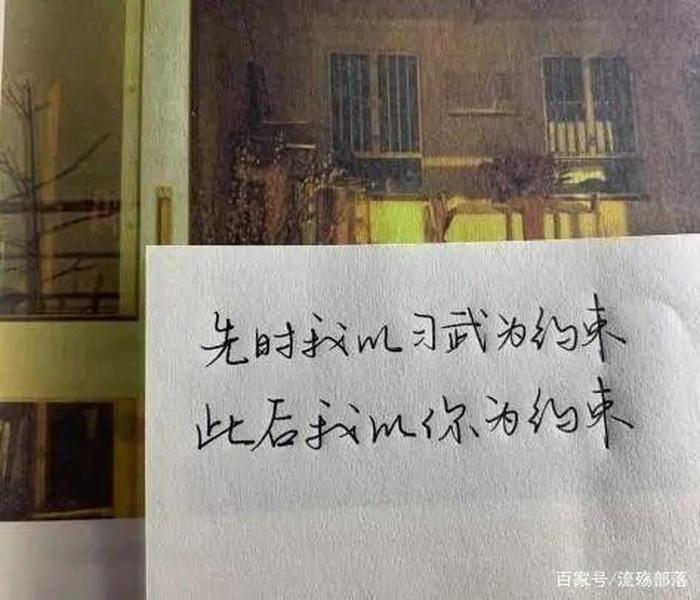 先时我以习武为约束
此后我以你为约束
百家号/流殇部落